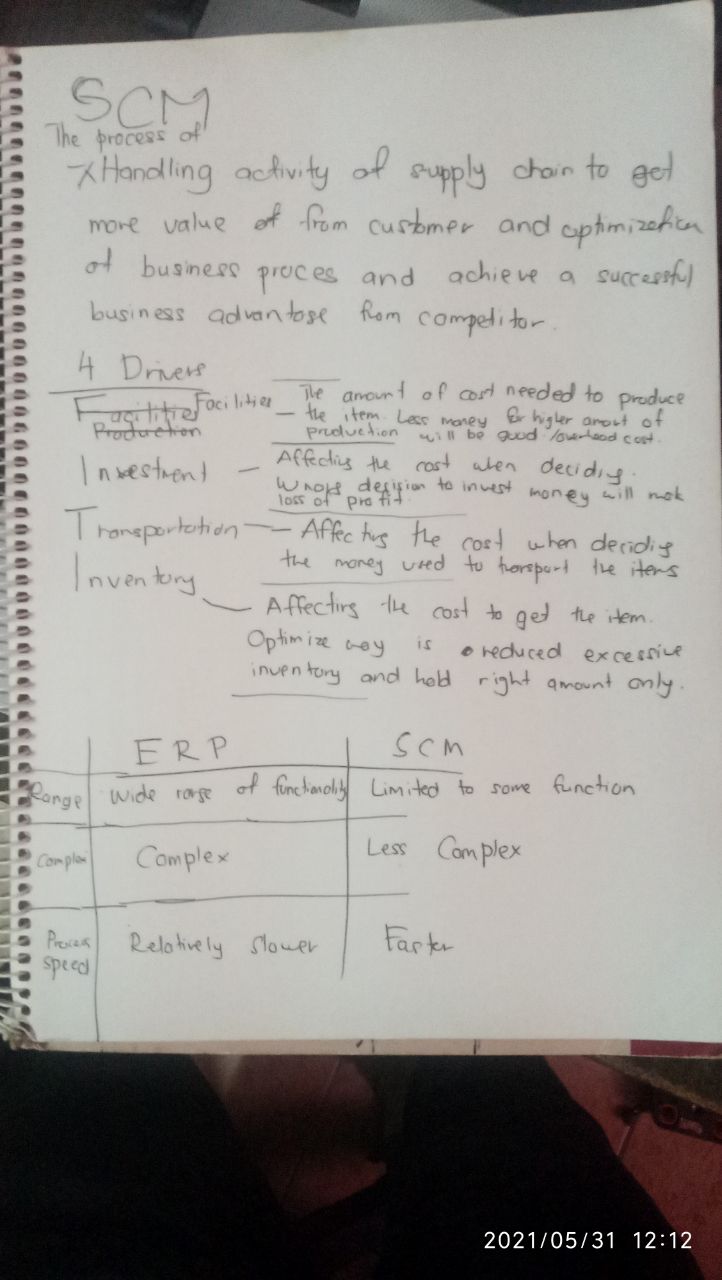 SCM
The process of
Handling activity of supply chain to get
more value of from customer and optimization
of business proces and achieve a successful
business advantage from competitor.
4 Drivers
Facilities Facilities — The amount of cost needed to produce
Production the item. Less money for higher amout of
production will be good /overhead cost.
Investment — Affecting the cost when deciding.
Wrong desision to invest money will mak
loss of profit.
Transportation — Affecting the cost when deciding
the money used to transport the items
Inventory
— Affecting the cost to get the item.
Optimize way is reduced excessive
inventory and hold right amount only.
ERP SCM
Range Wide range of functionality Limited to some function
Complex Complex Less Complex
Process speed Relatively slower Faster
2021/05/31 12:12